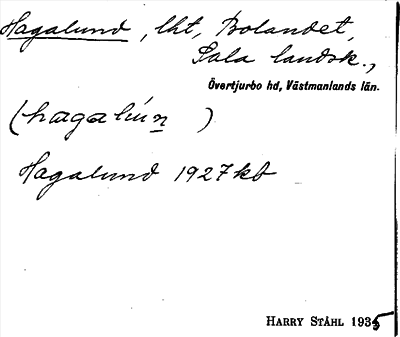 Hagalund, lht, Bolandet,
Sala landsk.,
Övertjurbo hd, Västmanlands län.
(hagalún)
Hagalund 1927 kb
HARRY STÅHL 1935